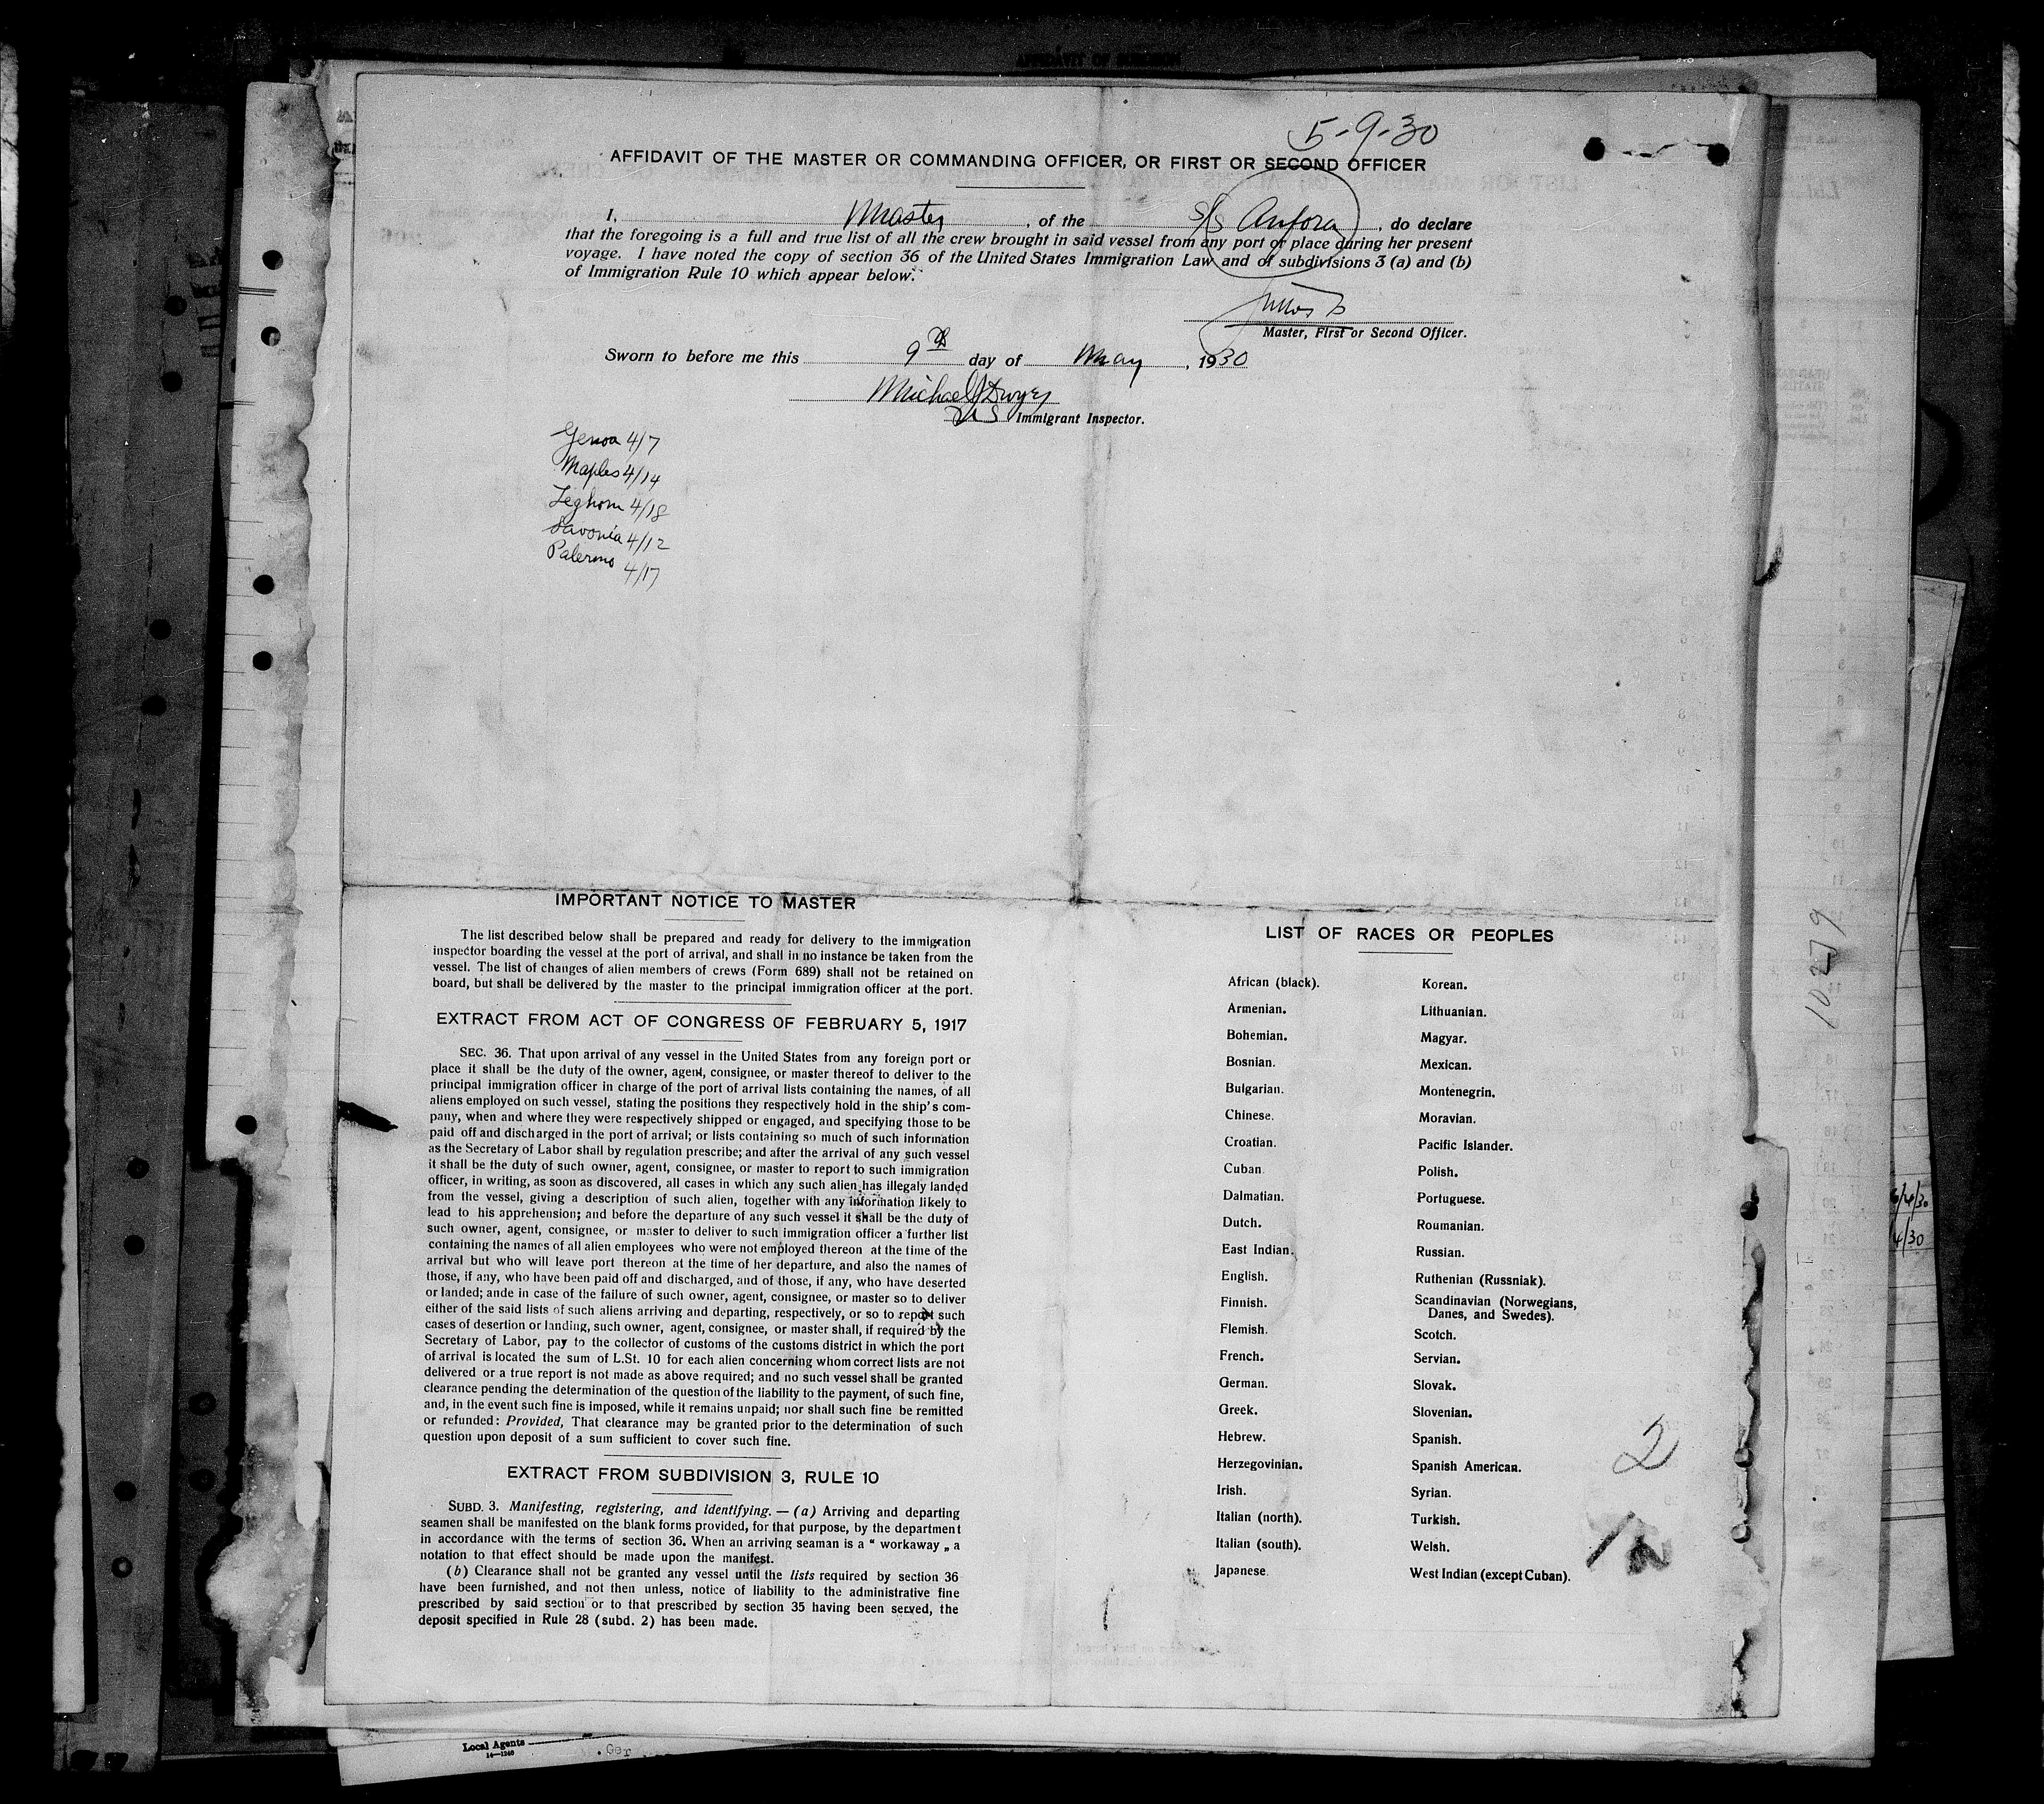 5-9-30
AFFIDAVIT OF THE MASTER OR COMMANDING OFFICER, OR FIRST OR SECOND OFFICER
I, Master, of the S/S Anfora, do declare
that the foregoing is a full and true list of all the crew brought in said vessel from any port or place during her present
voyage. I have noted the copy of section 36 of the United States Immigration Law and of subdivisions 3 (a) and (b)
of Immigration Rule 10 which appear below.
Master, First or Second Officer.
Sworn to before me this 9th day of May, 1930
Michael J Dwyer
US Immigrant Inspector.
Genoa 4/7
Naples 4/14
Leghorn 4/18
Savonia 4/12
Palermo 4/17
IMPORTANT NOTICE TO MASTER
The list described below shall be prepared and ready for delivery to the immigration
inspector boarding the vessel at the port of arrival, and shall in no instance be taken from the
vessel. The list of changes of alien members of crews (Form 689) shall not be retained on
board, but shall be delivered by the master to the principal immigration officer at the port.
EXTRACT FROM ACT OF CONGRESS OF FEBRUARY 5, 1917
SEC. 36. That upon arrival of any vessel in the United States from any foreign port or
place it shall be the duty of the owner, agent, consignee, or master thereof to deliver to the
principal immigration officer in charge of the port of arrival lists containing the names, of all
aliens employed on such vessel, stating the positions they respectively hold in the ship's com-
pany, when and where they were respectively shipped or engaged, and specifying those to be
paid off and discharged in the port of arrival; or lists containing so much of such information
as the Secretary of Labor shall by regulation prescribe; and after the arrival of any such vessel
it shall be the duty of such owner, agent, consignee, or master to report to such immigration
officer, in writing, as soon as discovered, all cases in which any such alien has illegaly landed
from the vessel, giving a description of such alien, together with any information likely to
lead to his apprehension; and before the departure of any such vessel it shall be the duty of
such owner, agent, consignee, or master to deliver to such immigration officer a further list
containing the names of all alien employees who were not employed thereon at the time of the
arrival but who will leave port thereon at the time of her departure, and also the names of
those, if any, who have been paid off and discharged, and of those, if any, who have deserted
or landed; ande in case of the failure of such owner, agent, consignee, or master so to deliver
either of the said lists of such aliens arriving and departing, respectively, or so to report such
cases of desertion or landing, such owner, agent, consignee, or master shall, if required by the
Secretary of Labor, pay to the collector of customs of the customs district in which the port
of arrival is located the sum of L.St. 10 for each alien concerning whom correct lists are not
delivered or a true report is not made as above required; and no such vessel shall be granted
clearance pending the determination of the question of the liability to the payment, of such fine,
and, in the event such fine is imposed, while it remains unpaid; nor shall such fine be remitted
or refunded: Provided, That clearance may be granted prior to the determination of such
question upon deposit of a sum sufficient to cover such fine.
EXTRACT FROM SUBDIVISION 3, RULE 10
SUBD. 3. Manifesting, registering, and identifying. — (a) Arriving and departing
seamen shall be manifested on the blank forms provided, for that purpose, by the department
in accordance with the terms of section 36. When an arriving seaman is a " workaway „ a
notation to that effect should be made upon the manifest.
(b) Clearance shall not be granted any vessel until the lists required by section 36
have been furnished, and not then unless, notice of liability to the administrative fine
prescribed by said section or to that prescribed by section 35 having been served, the
deposit specified in Rule 28 (subd. 2) has been made.
LIST OF RACES OR PEOPLES
African (black).
Armenian.
Bohemian.
Bosnian.
Bulgarian.
Chinese.
Croatian.
Cuban
Dalmatian.
Dutch.
East Indian.
English.
Finnish.
Flemish.
French.
German.
Greek.
Hebrew.
Herzegovinian.
Irish.
Italian (north).
Italian (south).
Japanese
Korean.
Lithuanian.
Magyar.
Mexican.
Montenegrin.
Moravian.
Pacific Islander.
Polish.
Portuguese.
Roumanian.
Russian.
Ruthenian (Russniak).
Scandinavian (Norwegians,
Danes, and Swedes).
Scotch.
Servian.
Slovak.
Slovenian.
Spanish.
Spanish American.
Syrian.
Turkish.
Welsh.
West Indian (except Cuban).
2
Local Agents
14—1240